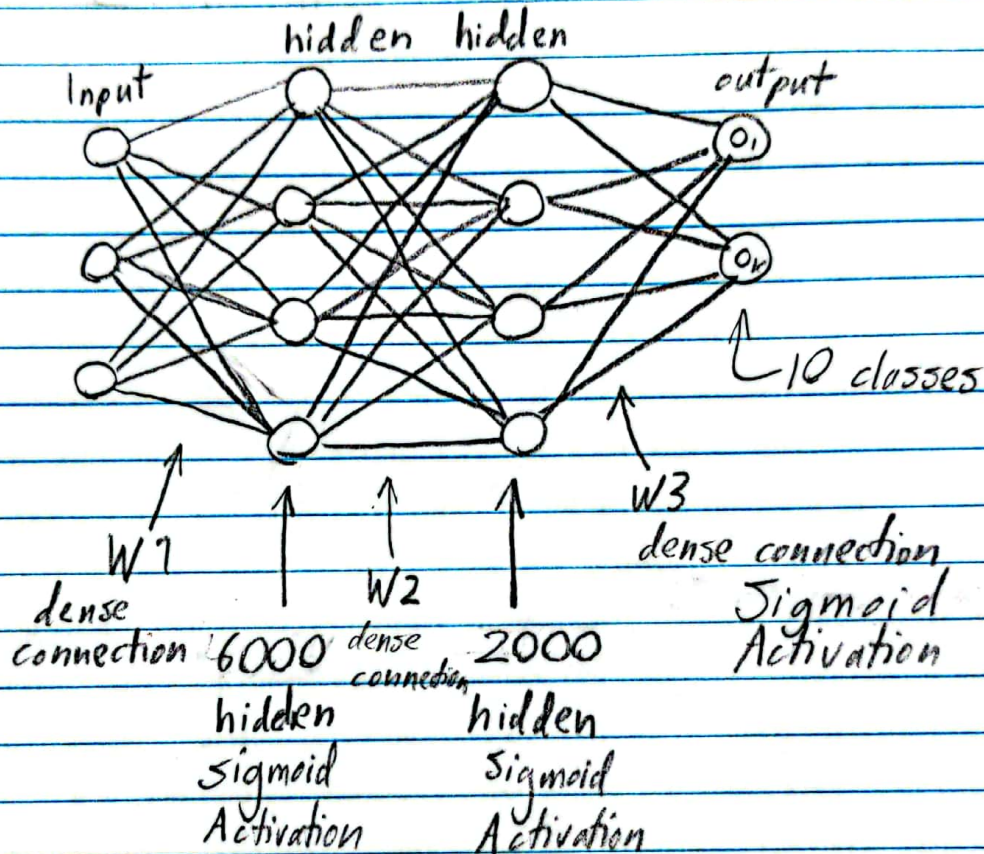 hidden hidden
Input
output
O1
OK
10 classes
W1
W2
W3
dense
connection
6000
hidden
sigmoid
Activation
dense
connection
2000
hidden
sigmoid
Activation
dense connection
Sigmoid
Activation